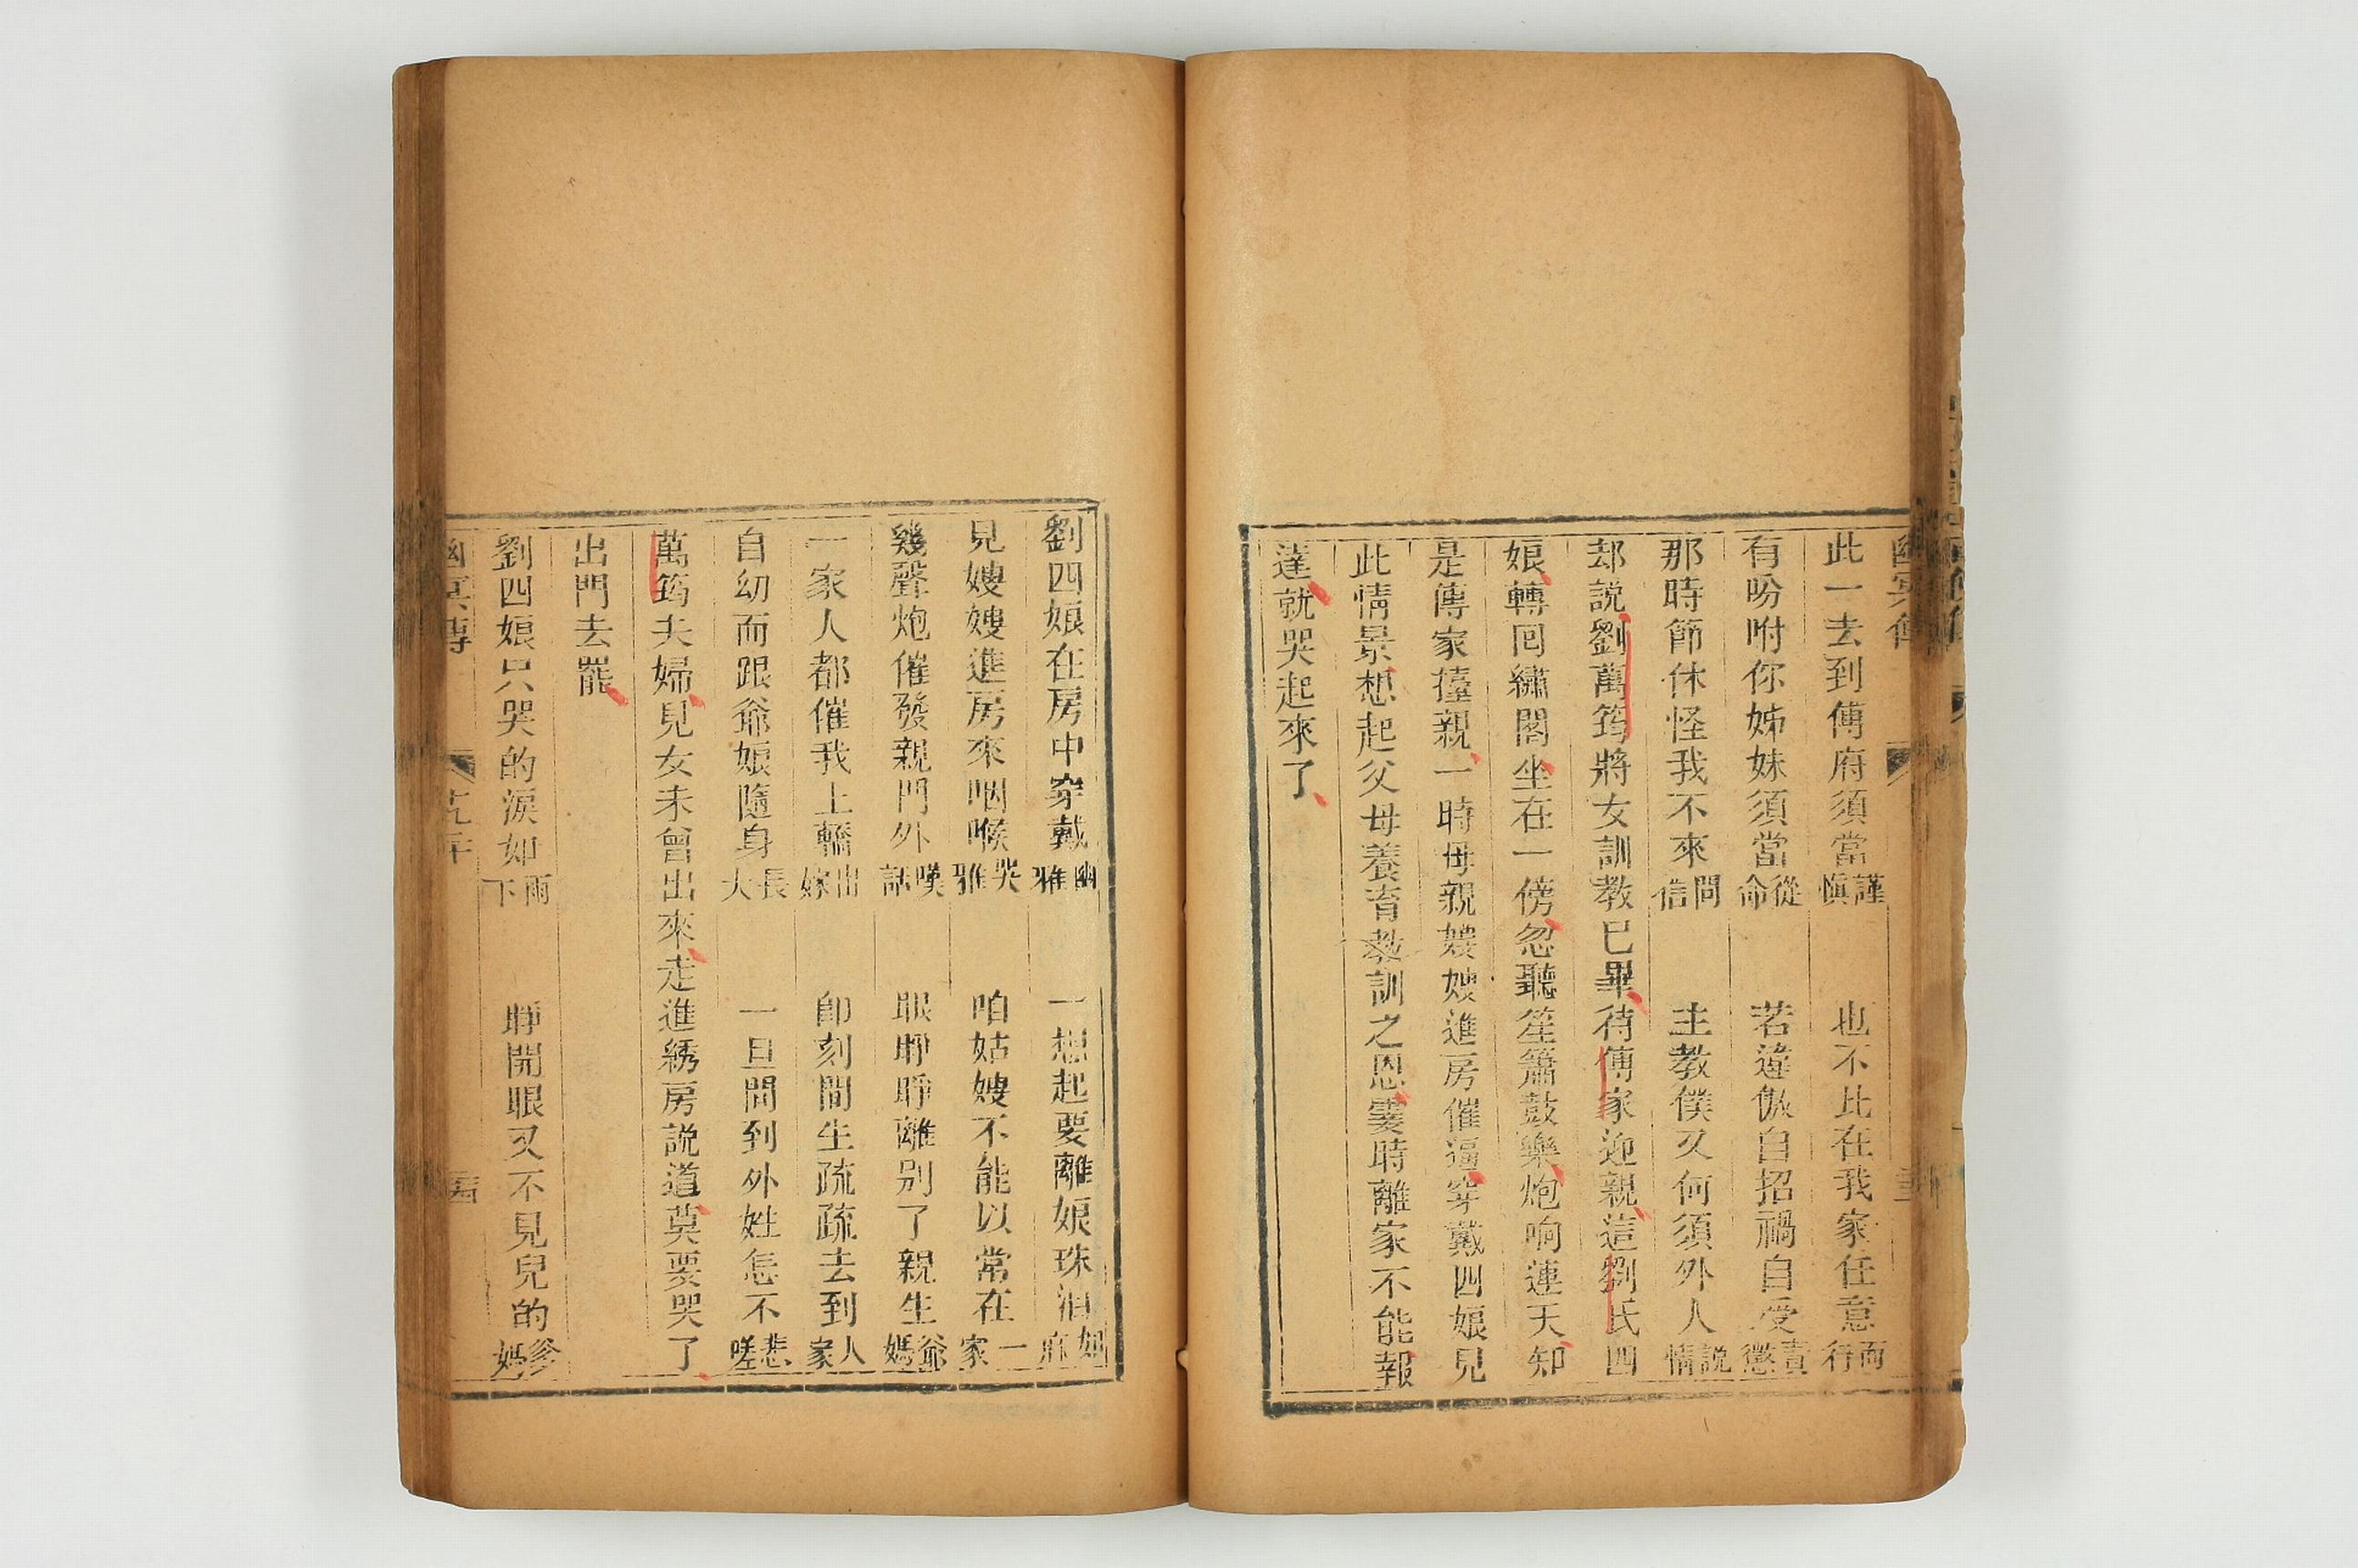 此一去到傅府須當謹慎　也不比在我家任意而行
有吩咐你姊妹須當從命　若違傲自招禍自受責懲
那時節休怪我不來問信　主教僕又何須外人說情
却說劉萬筠將女訓教已畢待傅家迎親這劉氏四
娘轉囘繡閣坐在一傍忽聽笙簫鼓樂炮响連天知
是傅家擡親一時母親嫂嫂進房催逼穿戴四娘見
此情景想起父母養育教訓之恩霎時離家不能報
達就哭起來了
劉四娘在房中穿戴幽雅　一想起要離娘珠泪如麻
見嫂嫂進房來咽喉哭雅　咱姑嫂不能以常在一家
幾聲炮催發親門外嘆話　眼睜睜離別了親生爺媽
一家人都催我上轎出嫁　卽刻間生疏疏去到人家
自幼而跟爺娘隨身長大　一旦間到外姓怎不悲嗟
萬筠夫婦見女未曾出來走進綉房說道莫要哭了
出門去罷
劉四娘只哭的淚如雨下　睜開眼又不見兒的爹媽
幽冥傳